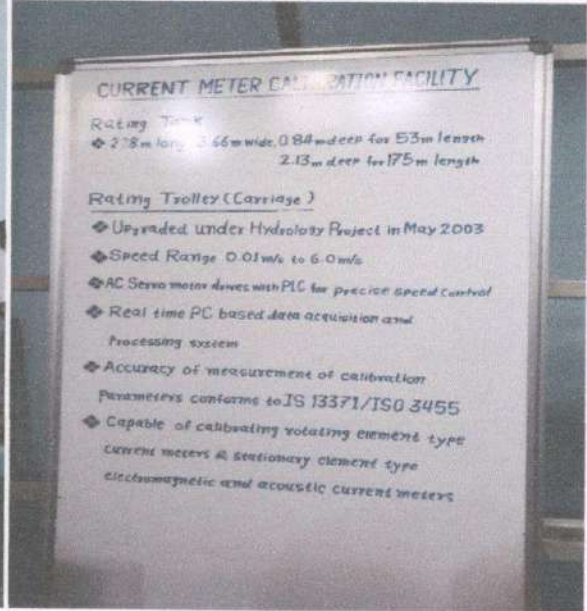 CURRENT METER CALIBRATION FACILITY
Rating Tank
❖ 228m long, 3.66m wide, 0.84m deep for 53m length
2.13m deep for 175m length
Rating Trolley (Carriage)
❖ Upgraded under Hydrology Project in May 2003
❖ Speed Range 0.01m/s to 6.0m/s
❖ AC Servo motor drives with PLC for precise speed control
❖ Real time PC based data acquisition and
Processing system
❖ Accuracy of measurement of calibration
Parameters conforms to IS 13371/ISO 3455
❖ Capable of calibrating rotating element type
current meters & stationary element type
electromagnetic and acoustic current meters